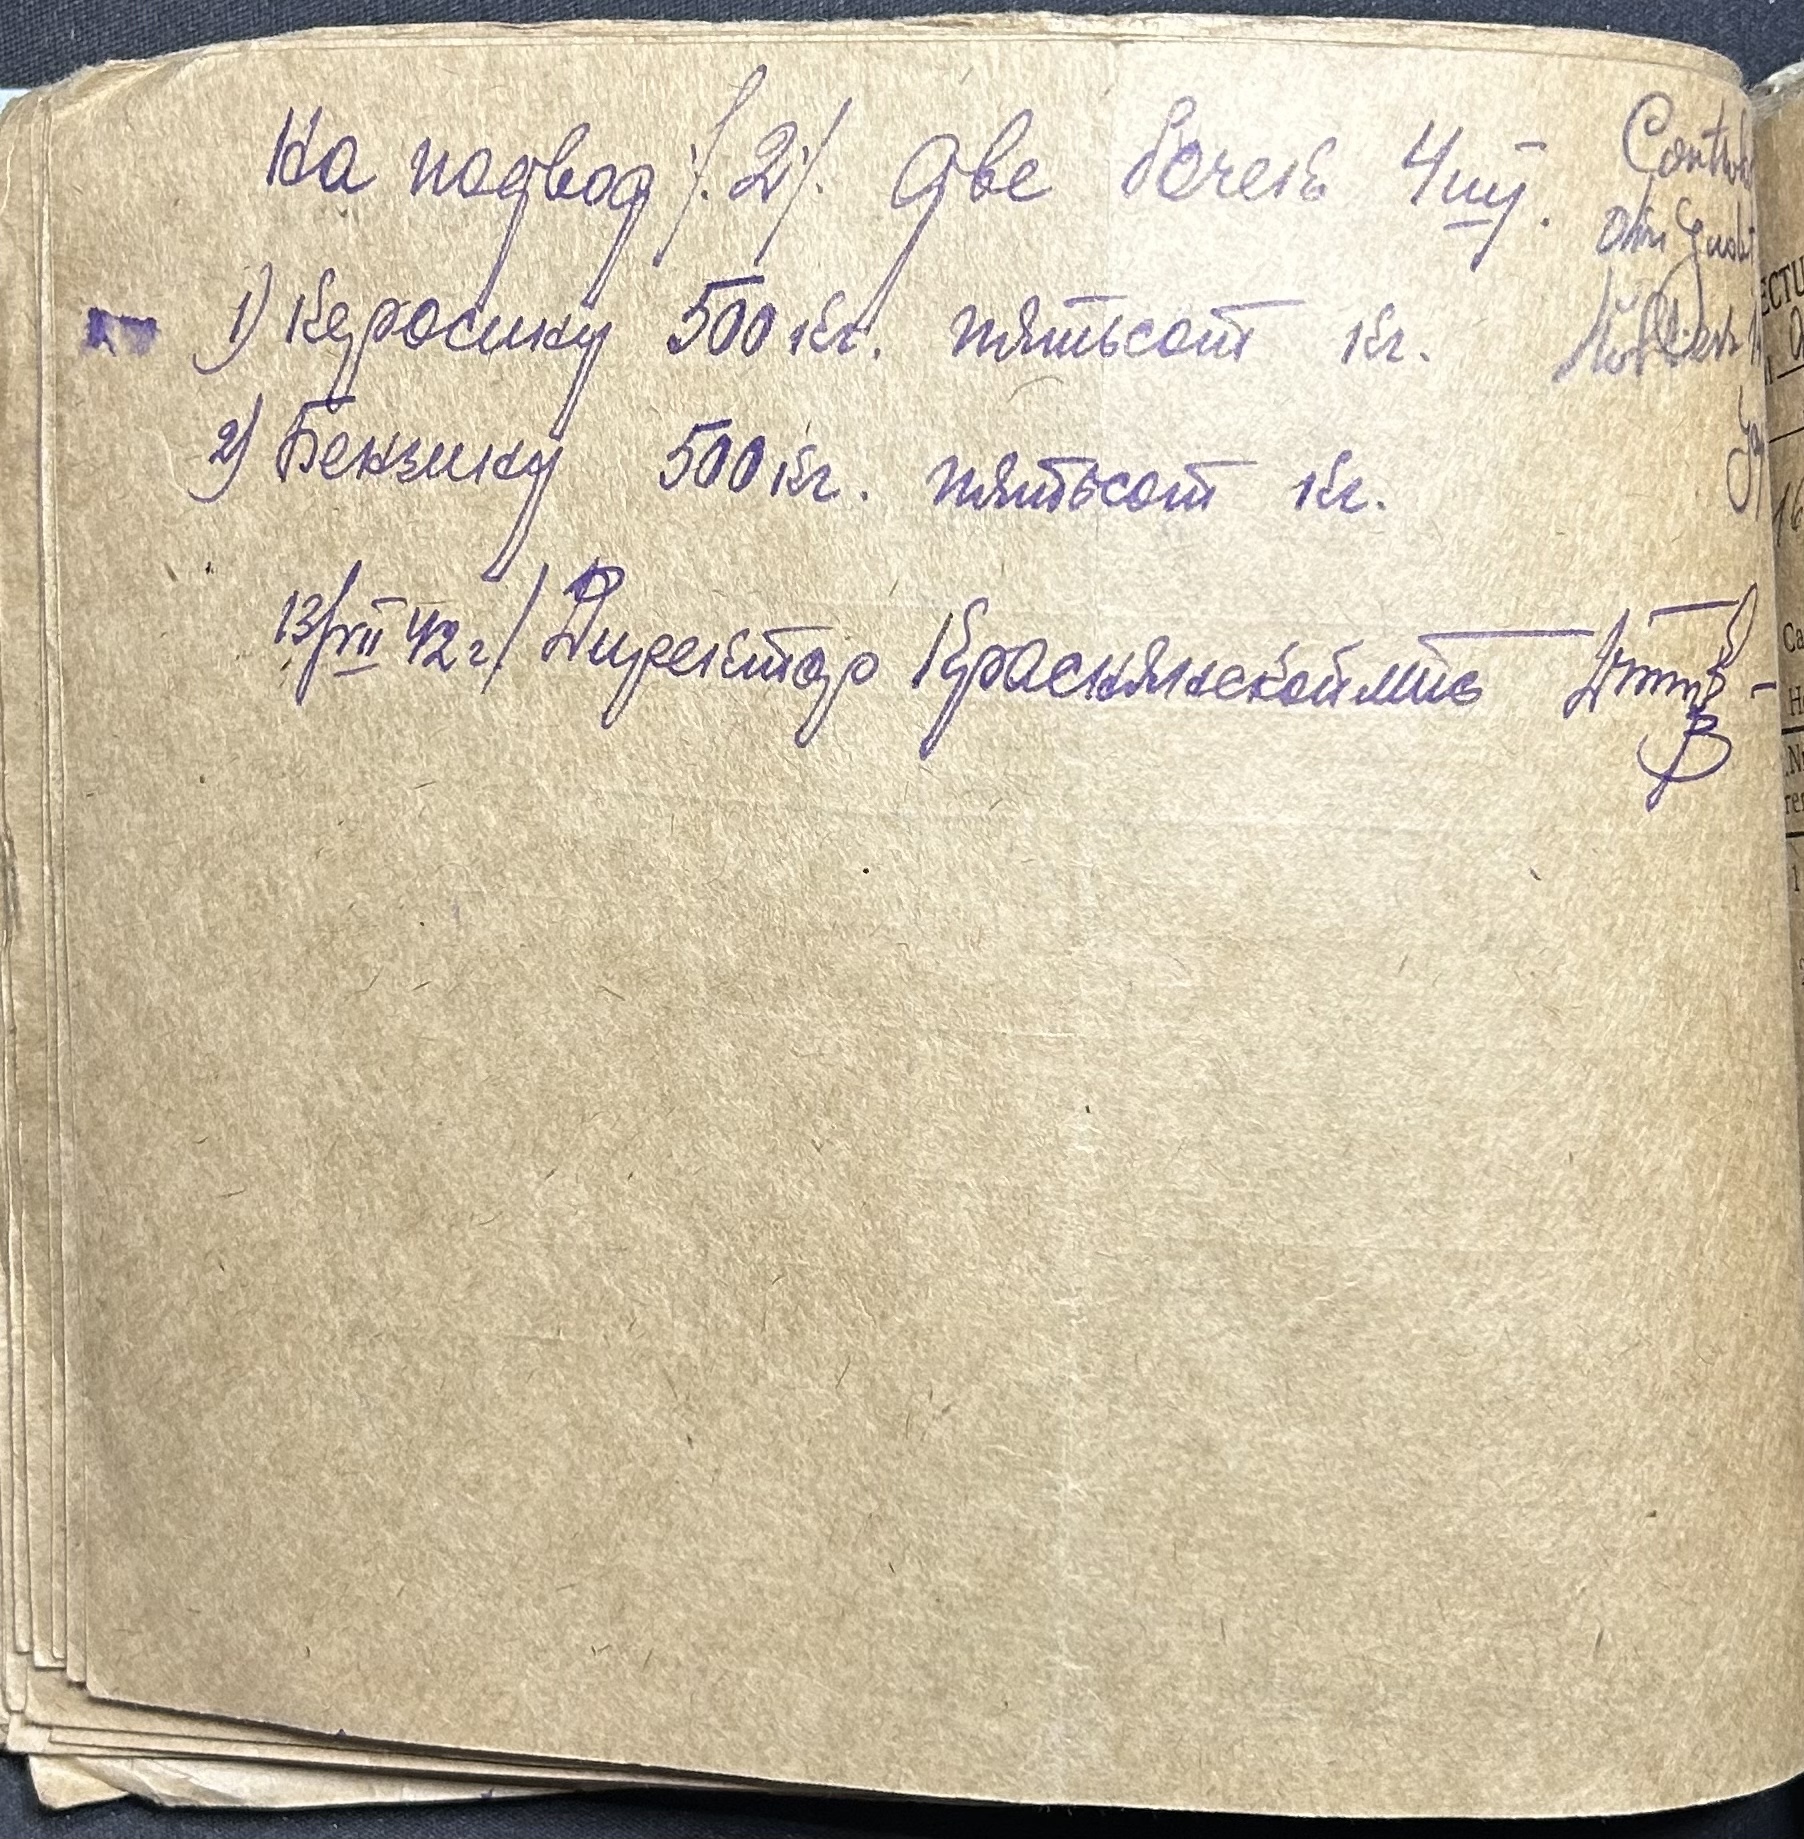 На подвод /.2/. две бочек 4 шт.
1) Керосину 500 кг. пятьсот кг.
2) Бензину 500 кг. пятьсот кг.
13/VII 42 г/ Директор Краснянской мтс
Control